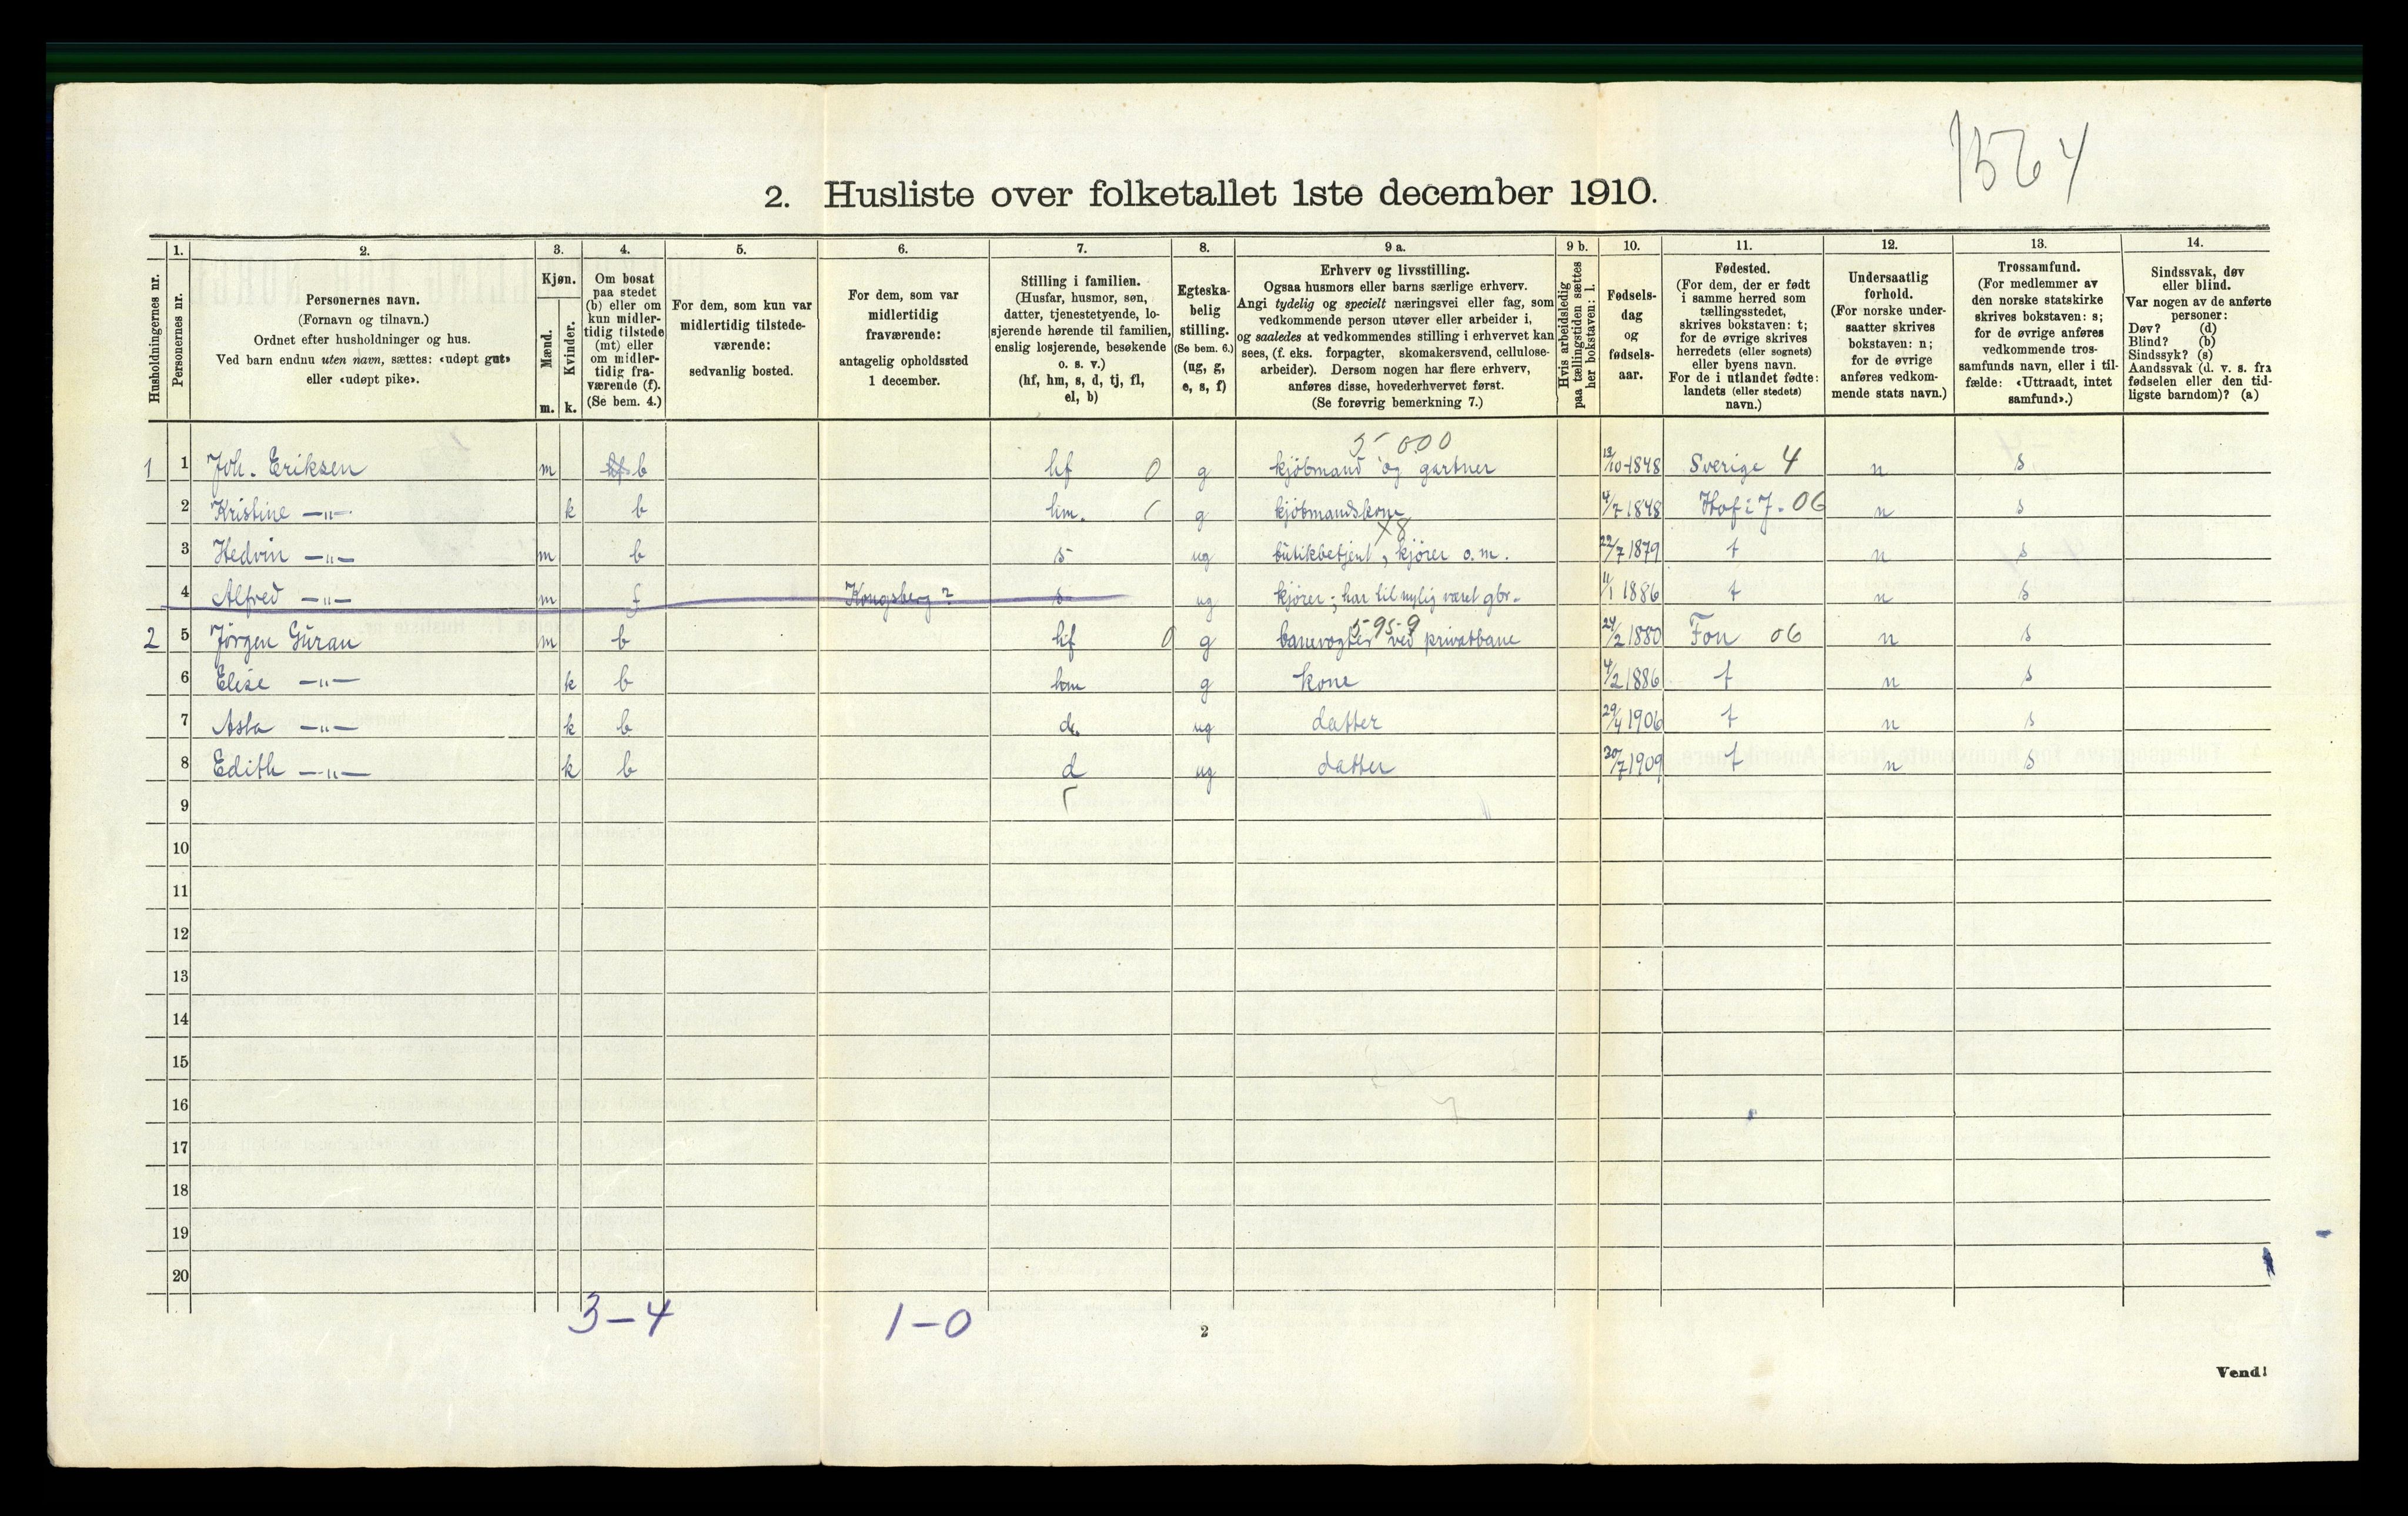 1564
2. Husliste over folketallet 1ste december 1910.
Husholdningernes nr.
1.
Personernes nr.
2.
Personernes navn.
(Fornavn og tilnavn.)
Ordnet efter husholdninger og hus.
Ved barn endnu uten navn, sættes: «udøpt gut»
eller «udøpt pike».
3.
Kjøn.
Mænd.
Kvinder.
m. k.
4.
Om bosat
paa stedet
(b) eller om
kun midler-
tidig tilstede
(mt) eller
om midler-
tidig fra-
værende (f).
(Se bem. 4.)
5.
For dem, som kun var
midlertidig tilstede-
værende:
sedvanlig bosted.
6.
For dem, som var
midlertidig
fraværende:
antagelig opholdssted
1 december.
7.
Stilling i familien.
(Husfar, husmor, søn,
datter, tjenestetyende, lo-
sjerende hørende til familien,
enslig losjerende, besøkende
o. s. v.)
(hf, hm, s, d, tj, fl,
el, b)
8.
Egteska-
belig
stilling.
(Se bem. 6.)
(ug, g,
e, s, f)
9 a.
Erhverv og livsstilling.
Ogsaa husmors eller barns særlige erhverv.
Angi tydelig og specielt næringsvei eller fag, som
vedkommende person utøver eller arbeider i,
og saaledes at vedkommendes stilling i erhvervet kan
sees, (f. eks. forpagter, skomakersvend, cellulose-
arbeider). Dersom nogen har flere erhverv,
anføres disse, hovederhvervet først.
(Se forøvrig bemerkning 7.)
9 b.
Hvis arbeidsledig
paa tællingstiden sættes
her bokstaven: l.
10.
Fødsels-
dag
og
fødsels-
aar.
11.
Fødested.
(For dem, der er født
i samme herred som
tællingsstedet,
skrives bokstaven: t;
for de øvrige skrives
herredets (eller sognets)
eller byens navn.
For de i utlandet fødte:
landets (eller stedets)
navn.)
12.
Undersaatlig
forhold.
(For norske under-
saatter skrives
bokstaven: n;
for de øvrige
anføres vedkom-
mende stats navn.)
13.
Trossamfund.
(For medlemmer av
den norske statskirke
skrives bokstaven: s;
for de øvrige anføres
vedkommende tros-
samfunds navn, eller i til-
fælde: «Uttraadt, intet
samfund».)
14.
Sindssvak, døv
eller blind.
Var nogen av de anførte
personer:
Døv? (d)
Blind? (b)
Sindssyk? (s)
Aandssvak (d. v. s. fra
fødselen eller den tid-
ligste barndom)? (a)
5 000
1 1 Joh. Eriksen m b hf 0 g kjöbmand og gartner 13/10 1848 Sverige 4 n s
2 Kristine —"— k b hm. g kjöbmandskone 4/7 1848 Hof i J. 06 n s
X8
3 Hedvin —"— m b s ug butikbetjent, kjörer o. m. 22/7 1879 t n s
4 Alfred —"— m f Kongsberg? s ug kjörer; har til nylig været gbr. 11/1 1886 t n s
5959
2 5 Jörgen Guran m b hf 0 g banevogter ved privatbane 24/2 1880 Fon 06 n s
6 Elise —"— k b hm g kone 4/2 1886 t n s
7 Asta —"— k b d. ug datter 29/4 1906 t n s
8 Edith —"— k b d ug datter 30/7 1909 t n s
9
10
11
12
13
14
15
16
17
18
19
20
3–4 1–0
2
Vend!